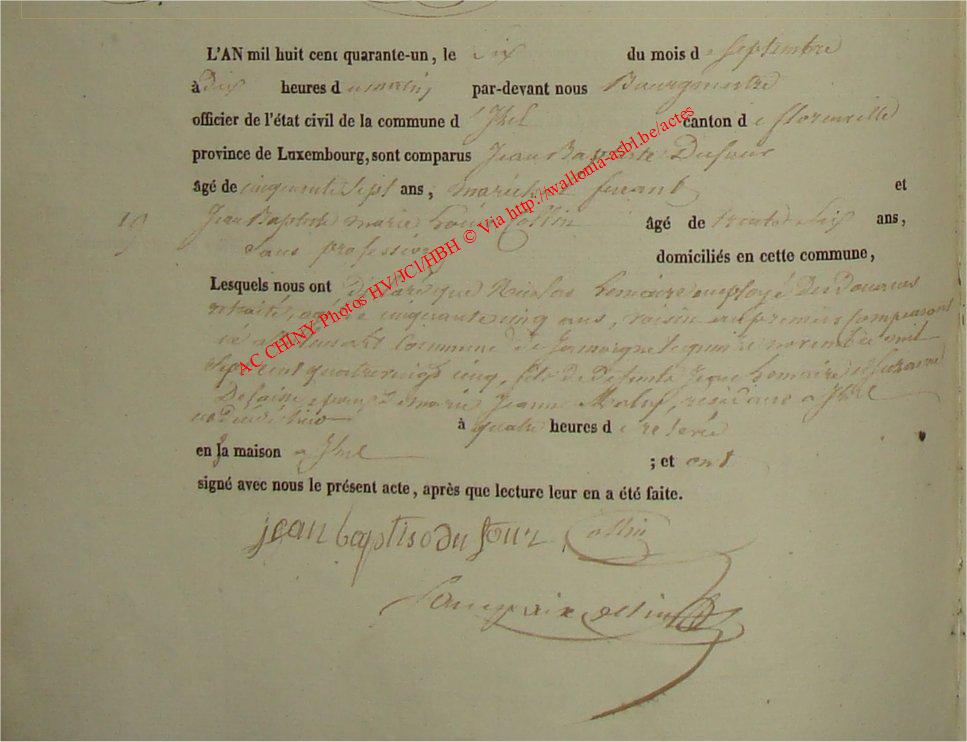 L'AN mil huit cent quarante-un, le dix du mois de Septembre
à dix heures du matin, par-devant nous Bourgmestre
officier de l'état civil de la commune d'Izel canton de florenville
province de Luxembourg, sont comparus Jean Baptiste Dufour
âgé de cinquante sept ans, maréchal ferrant et
19 Jean Baptiste marie Collin âgé de trente ans,
Sans profession domiciliés en cette commune,
Lesquels nous ont déclaré que Nicolas Lemaire employé des douanes
retraité, âgé de cinquante cinq ans, voisin au premier comparant
né à commune de Jamoigne novembre mil
Sept cent quatre vingt cinq, fils de Defunts Jean Lemaire et Suzanne
marie Jeanne résidant a Izel
à quatre heures de
en la maison a Izel ; et ont
signé avec nous le présent acte, après que lecture leur en a été faite.
jean baptise du four Collin
Collin
AC CHINY Photos HV/JCl/HBH © Via http://wallonia-asbl.be/actes